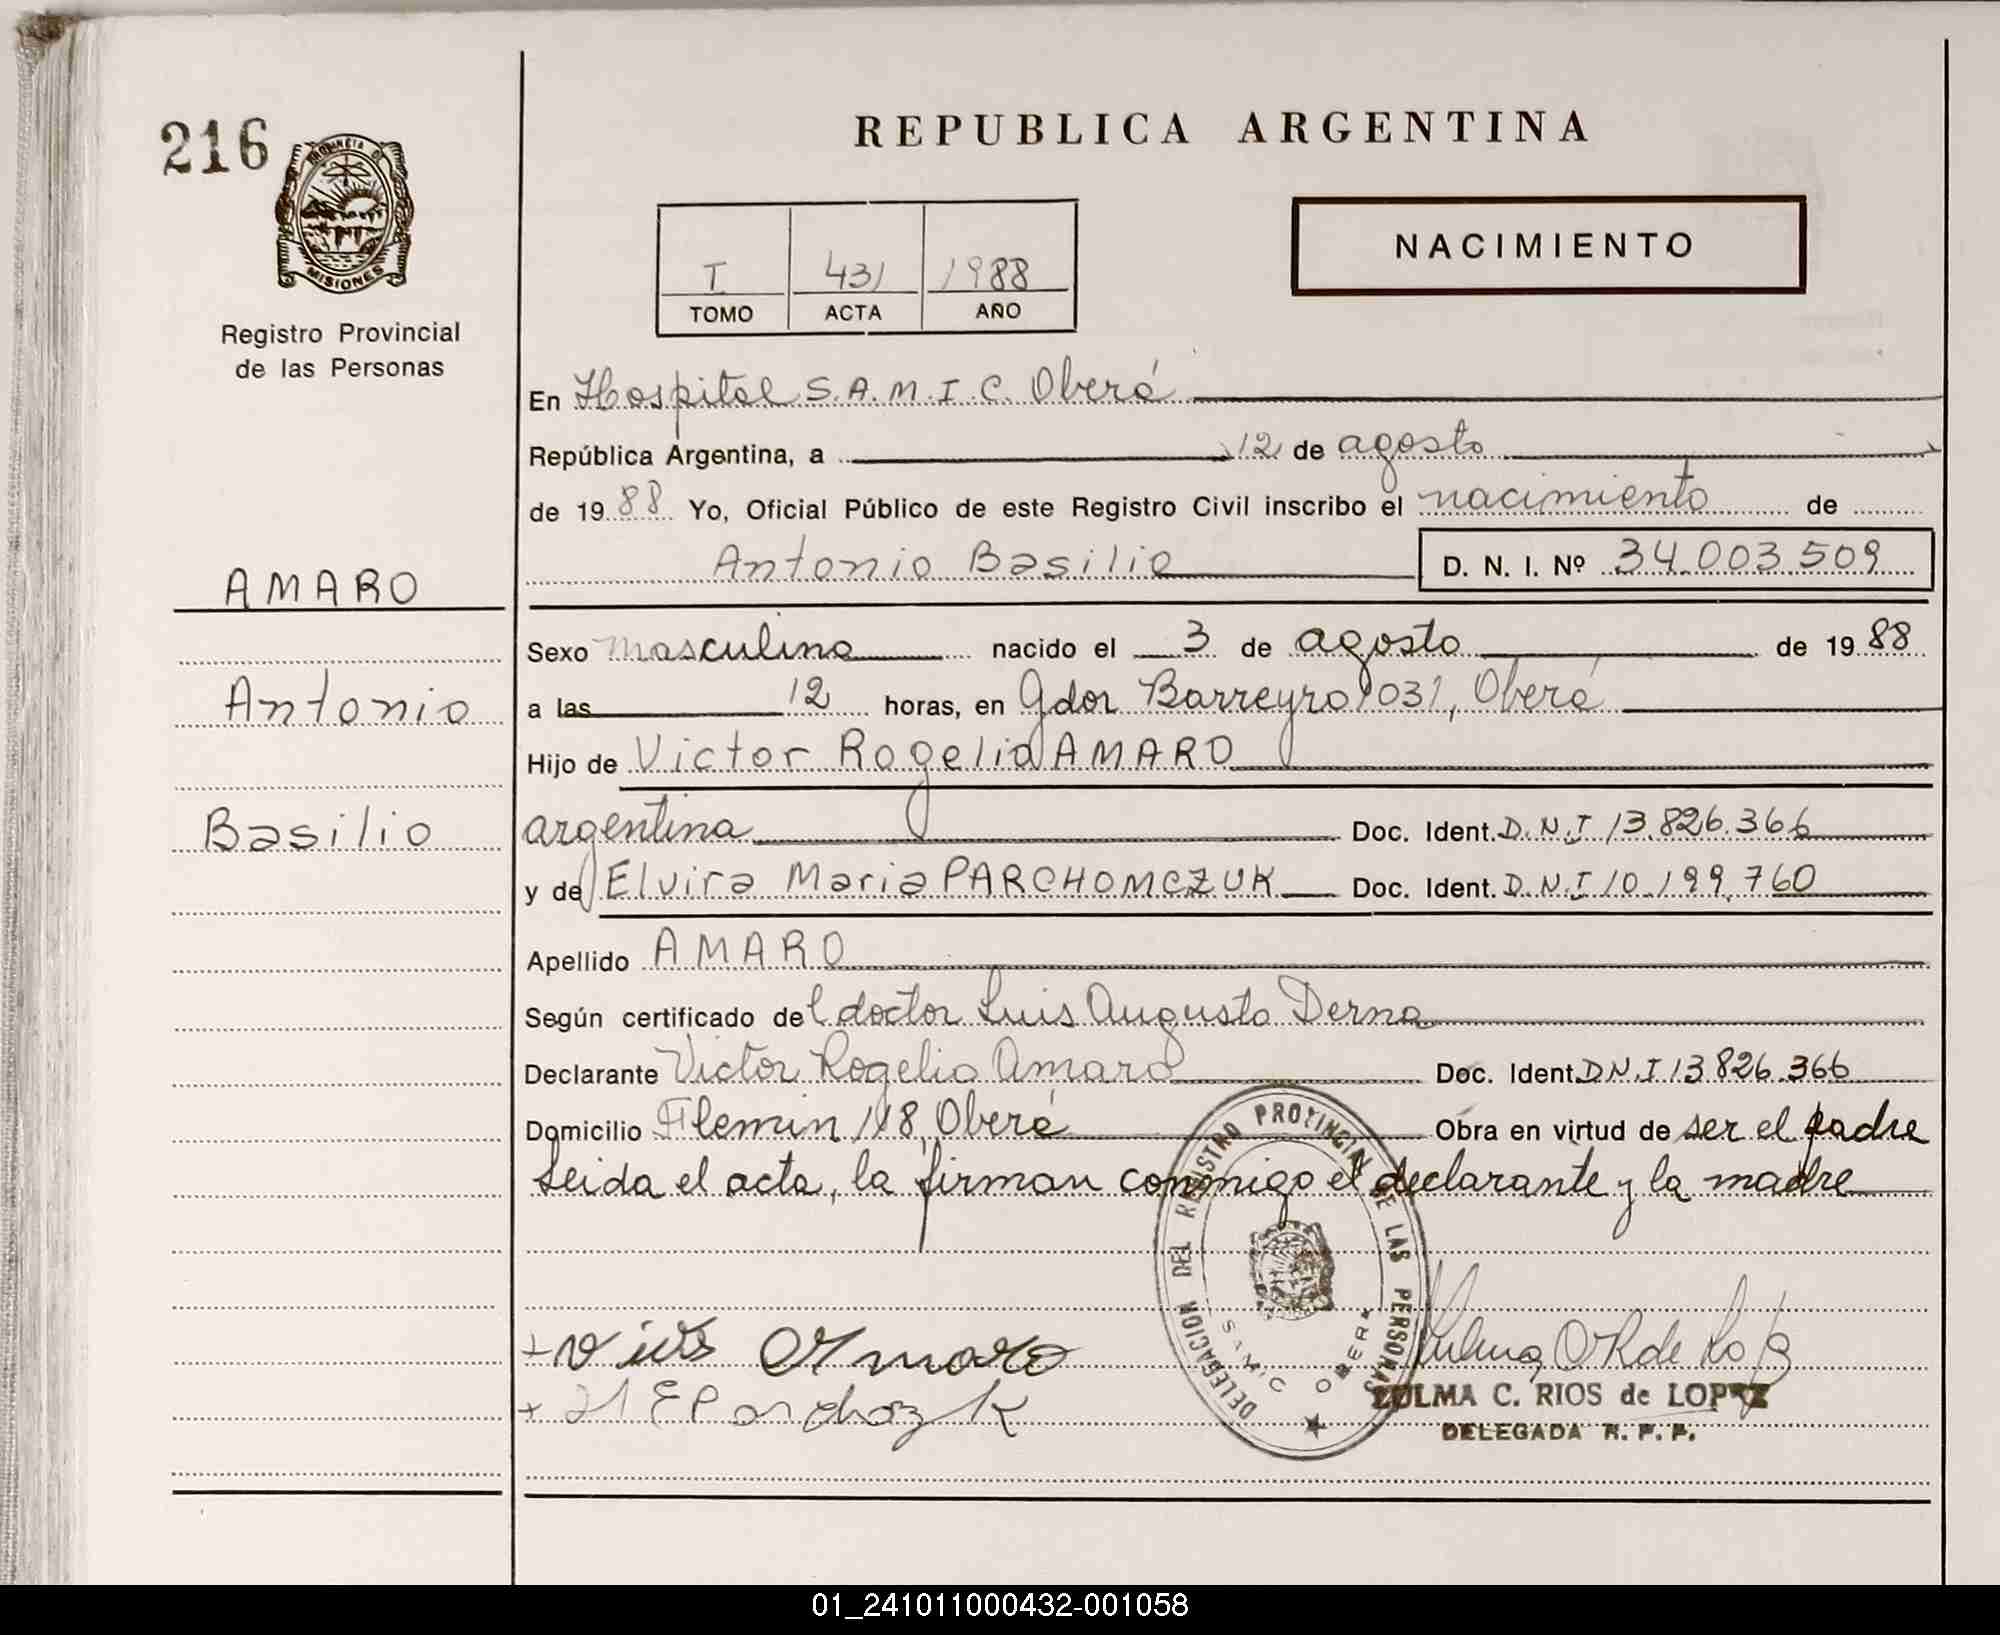 216
PROVINCIA D
MISIONES
Registro Provincial
de las Personas
AMARO
Antonio
Basilio
REPUBLICA ARGENTINA
T 431 1988
TOMO ACTA AÑO
NACIMIENTO
En Hospital S.A.M.I.C. Oberá
República Argentina, a 12 de agosto
de 1988 Yo, Oficial Público de este Registro Civil inscribo el nacimiento de
Antonio Basilio D. N. I. Nº 34.003.509
Sexo masculino nacido el 3 de agosto de 1988
a las 12 horas, en Gdor Barreyro 1031, Oberá
Hijo de Victor Rogelio AMARO
argentina Doc. Ident. D.N.I 13.826.366
y de Elvira Maria PARCHOMCZUK Doc. Ident. D.N.I 10.199.760
Apellido AMARO
Según certificado del doctor Luis Augusto Derna
Declarante Victor Rogelio Amaro Doc. Ident. D.N.I 13.826.366
Domicilio Flemin 118, Oberá Obra en virtud de ser el padre
Leida el acta, la firman conmigo el declarante y la madre
DELEGACION DEL REGISTRO PROVINCIAL DE LAS PERSONAS
SAMIC OBERA
Amaro
ZULMA C. RIOS de LOPEZ
DELEGADA R. P. P.
01_241011000432-001058